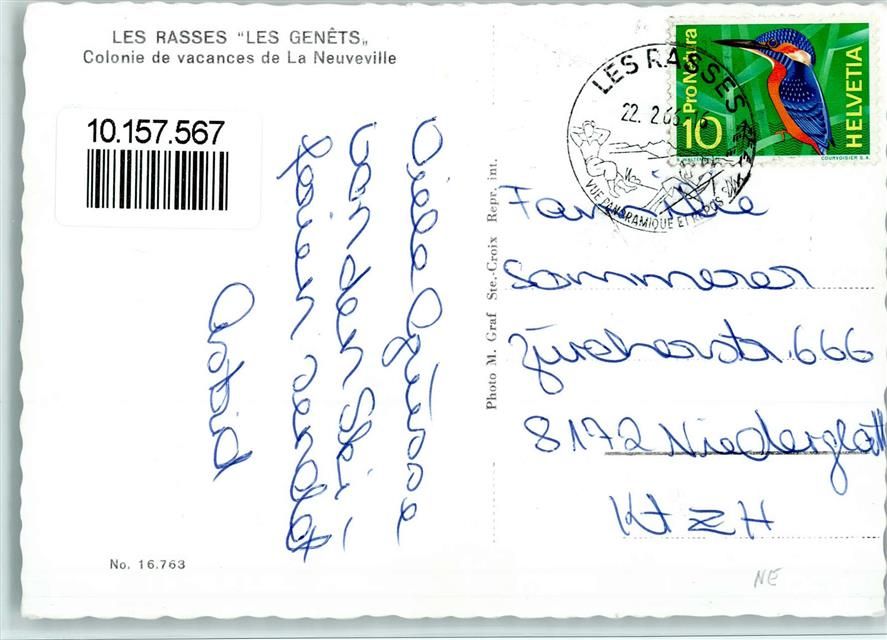 LES RASSES "LES GENÊTS„
Colonie de vacances de La Neuveville
10.157.567
Viele Grüsse
von den Ski
ferien sendet
No. 16.763
Photo M. Graf Ste.-Croix Repr. int.
LES RASSES
22. 2.66.-16
VUE PANORAMIQUE ET REPOS
Pro Natura
10
HELVETIA
COURVOISIER S.A.
Familie
Sommerer
Zürcherstr. 666
8172 Niederglatt
Kt ZH
NE